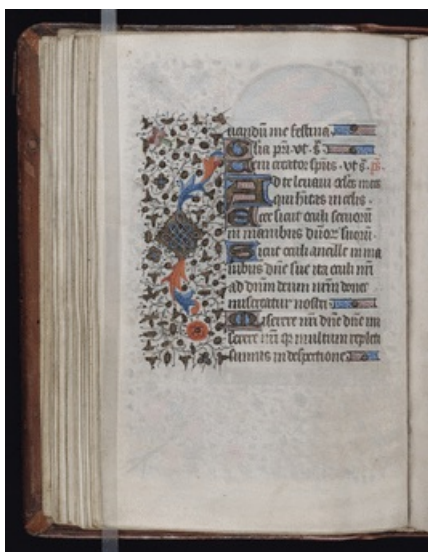 uandum me festina.
Glia pri. vt. s.
Veni creator spus. vt s. ps.
Ad te leuaui oclos meos
qui hitas in celis.
Ecce sicut oculi seruorum
in manibus dnorum suorum.
Sicut oculi ancille in ma
nibus dne sue ita oculi nri
ad dnm deum nrm donec
misereatur nostri.
Miserere nri dne mi
serere nri qr multum repleti
sumus in despectione.